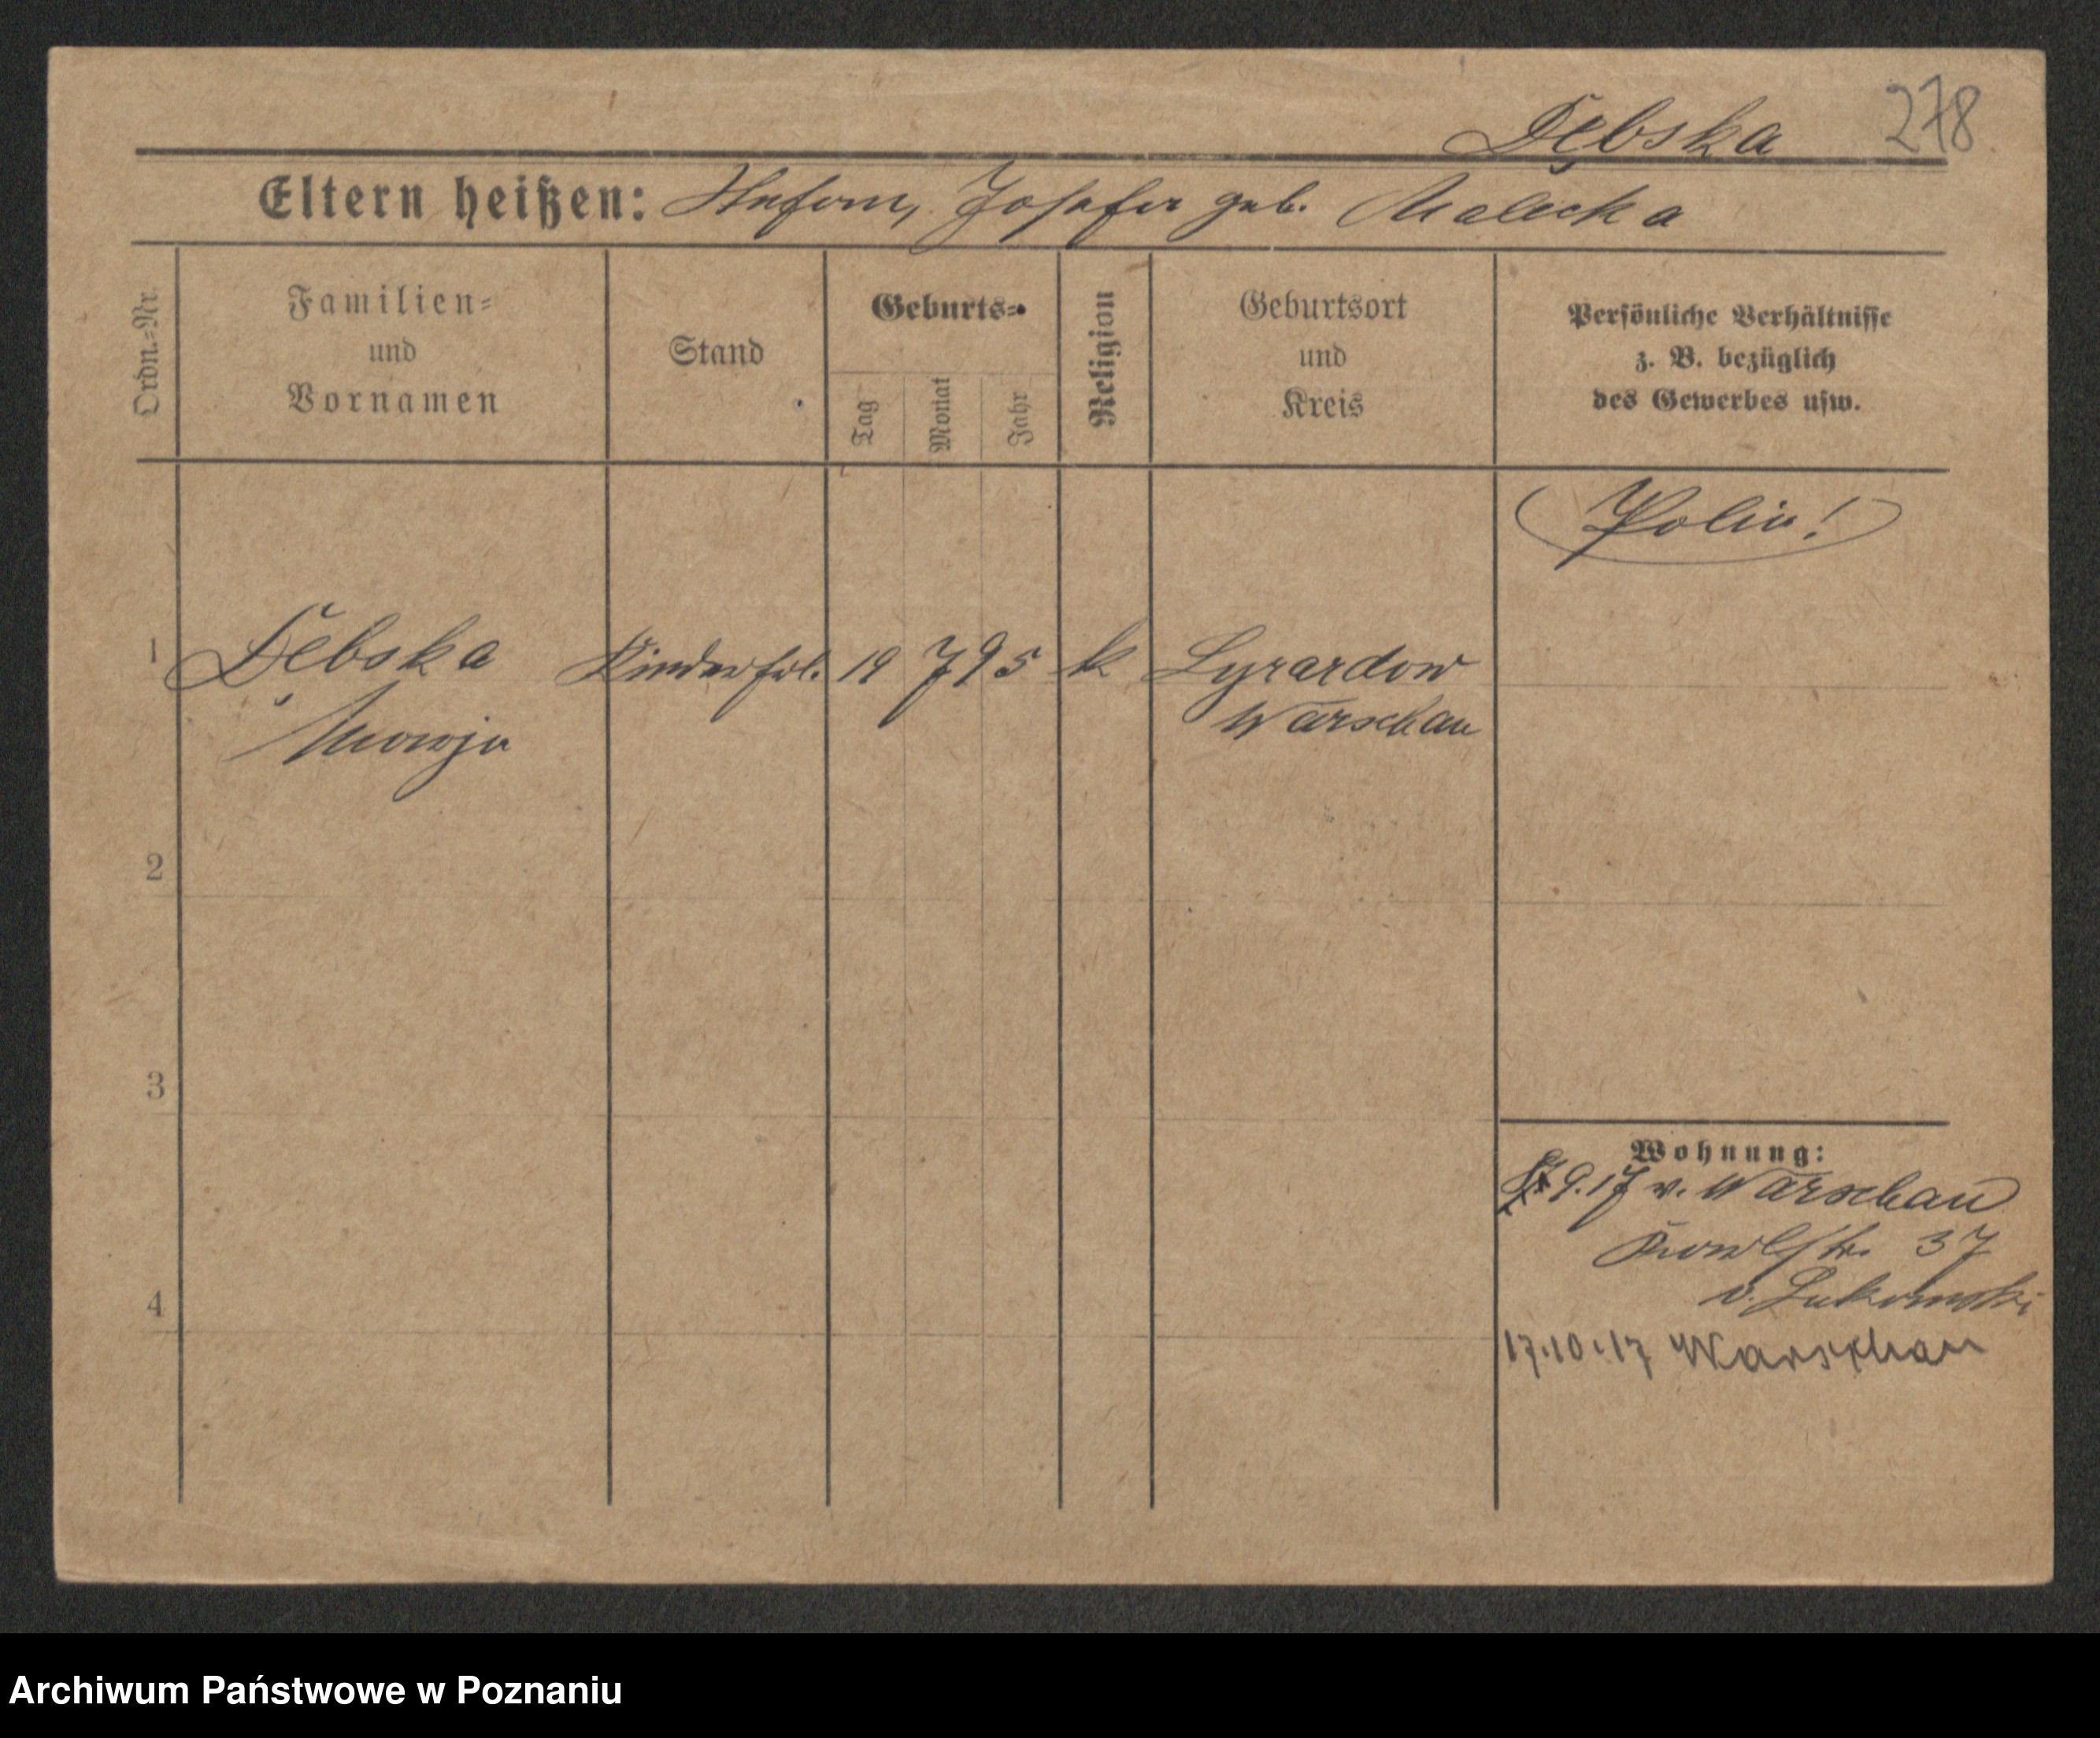 Dębska 278
Eltern heißen: Stefan, Josefa geb. Malicka
Ordn.=Nr.
Familien=
und
Vornamen
Stand
Geburts=
Tag
Monat
Jahr
Religion
Geburtsort
und
Kreis
Persönliche Verhältnisse
z. B. bezüglich
des Gewerbes usw.
(Polin!)
1 Dębska Kinderfrl. 19 7 95 k Zyrardow
Marja Warschau
2
3
4
Wohnung:
9.17 v. Warschau
37
v. Lukomski
17.10.17 Warschau
Archiwum Państwowe w Poznaniu